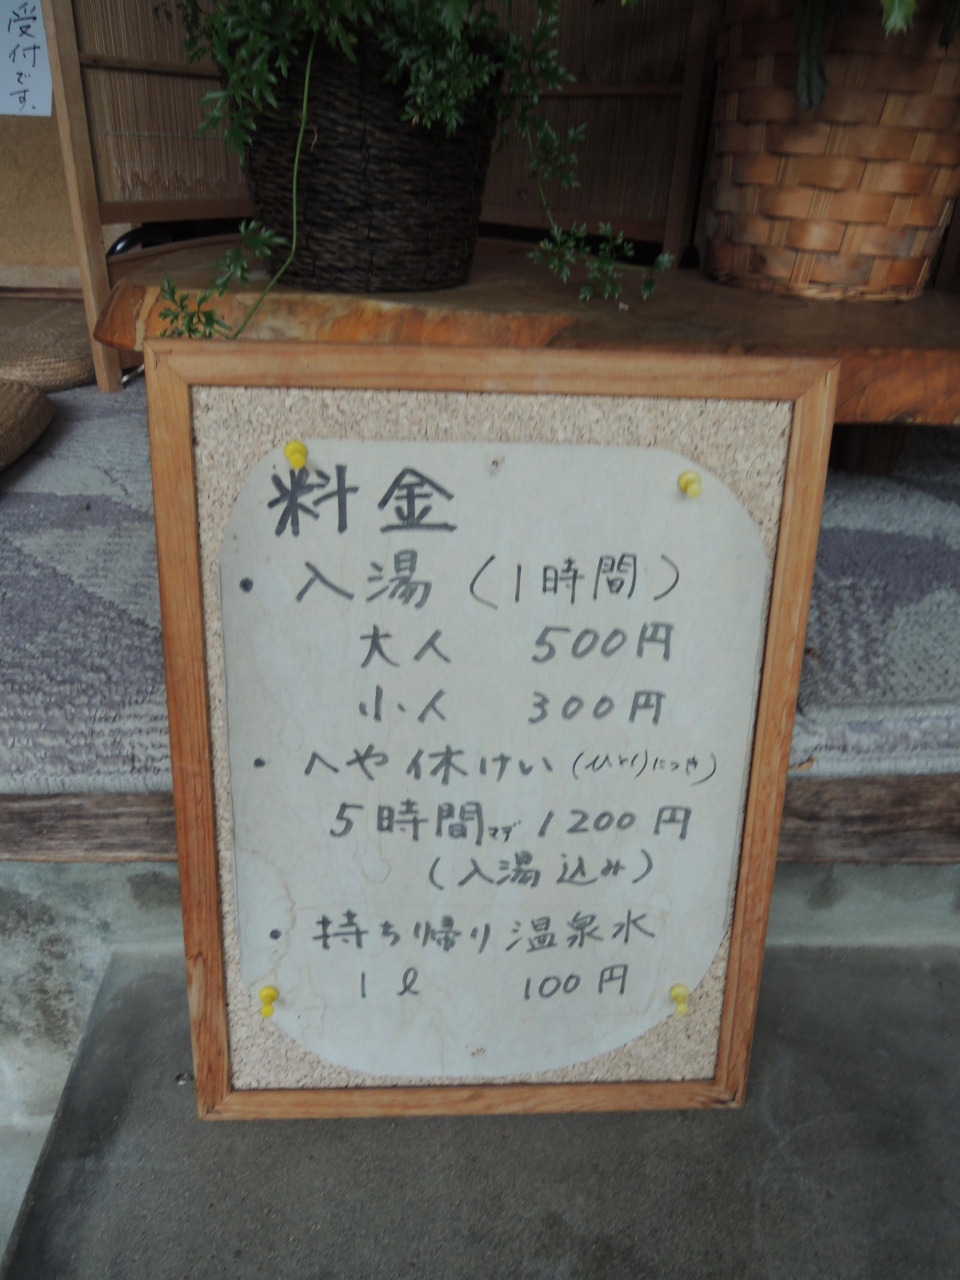 受付です。
料金
・入湯(1時間)
大人 500円
小人 300円
・へや休けい(ひとりにつき)
5時間マデ1200円
(入湯込み)
・持ち帰り温泉水
1ℓ 100円